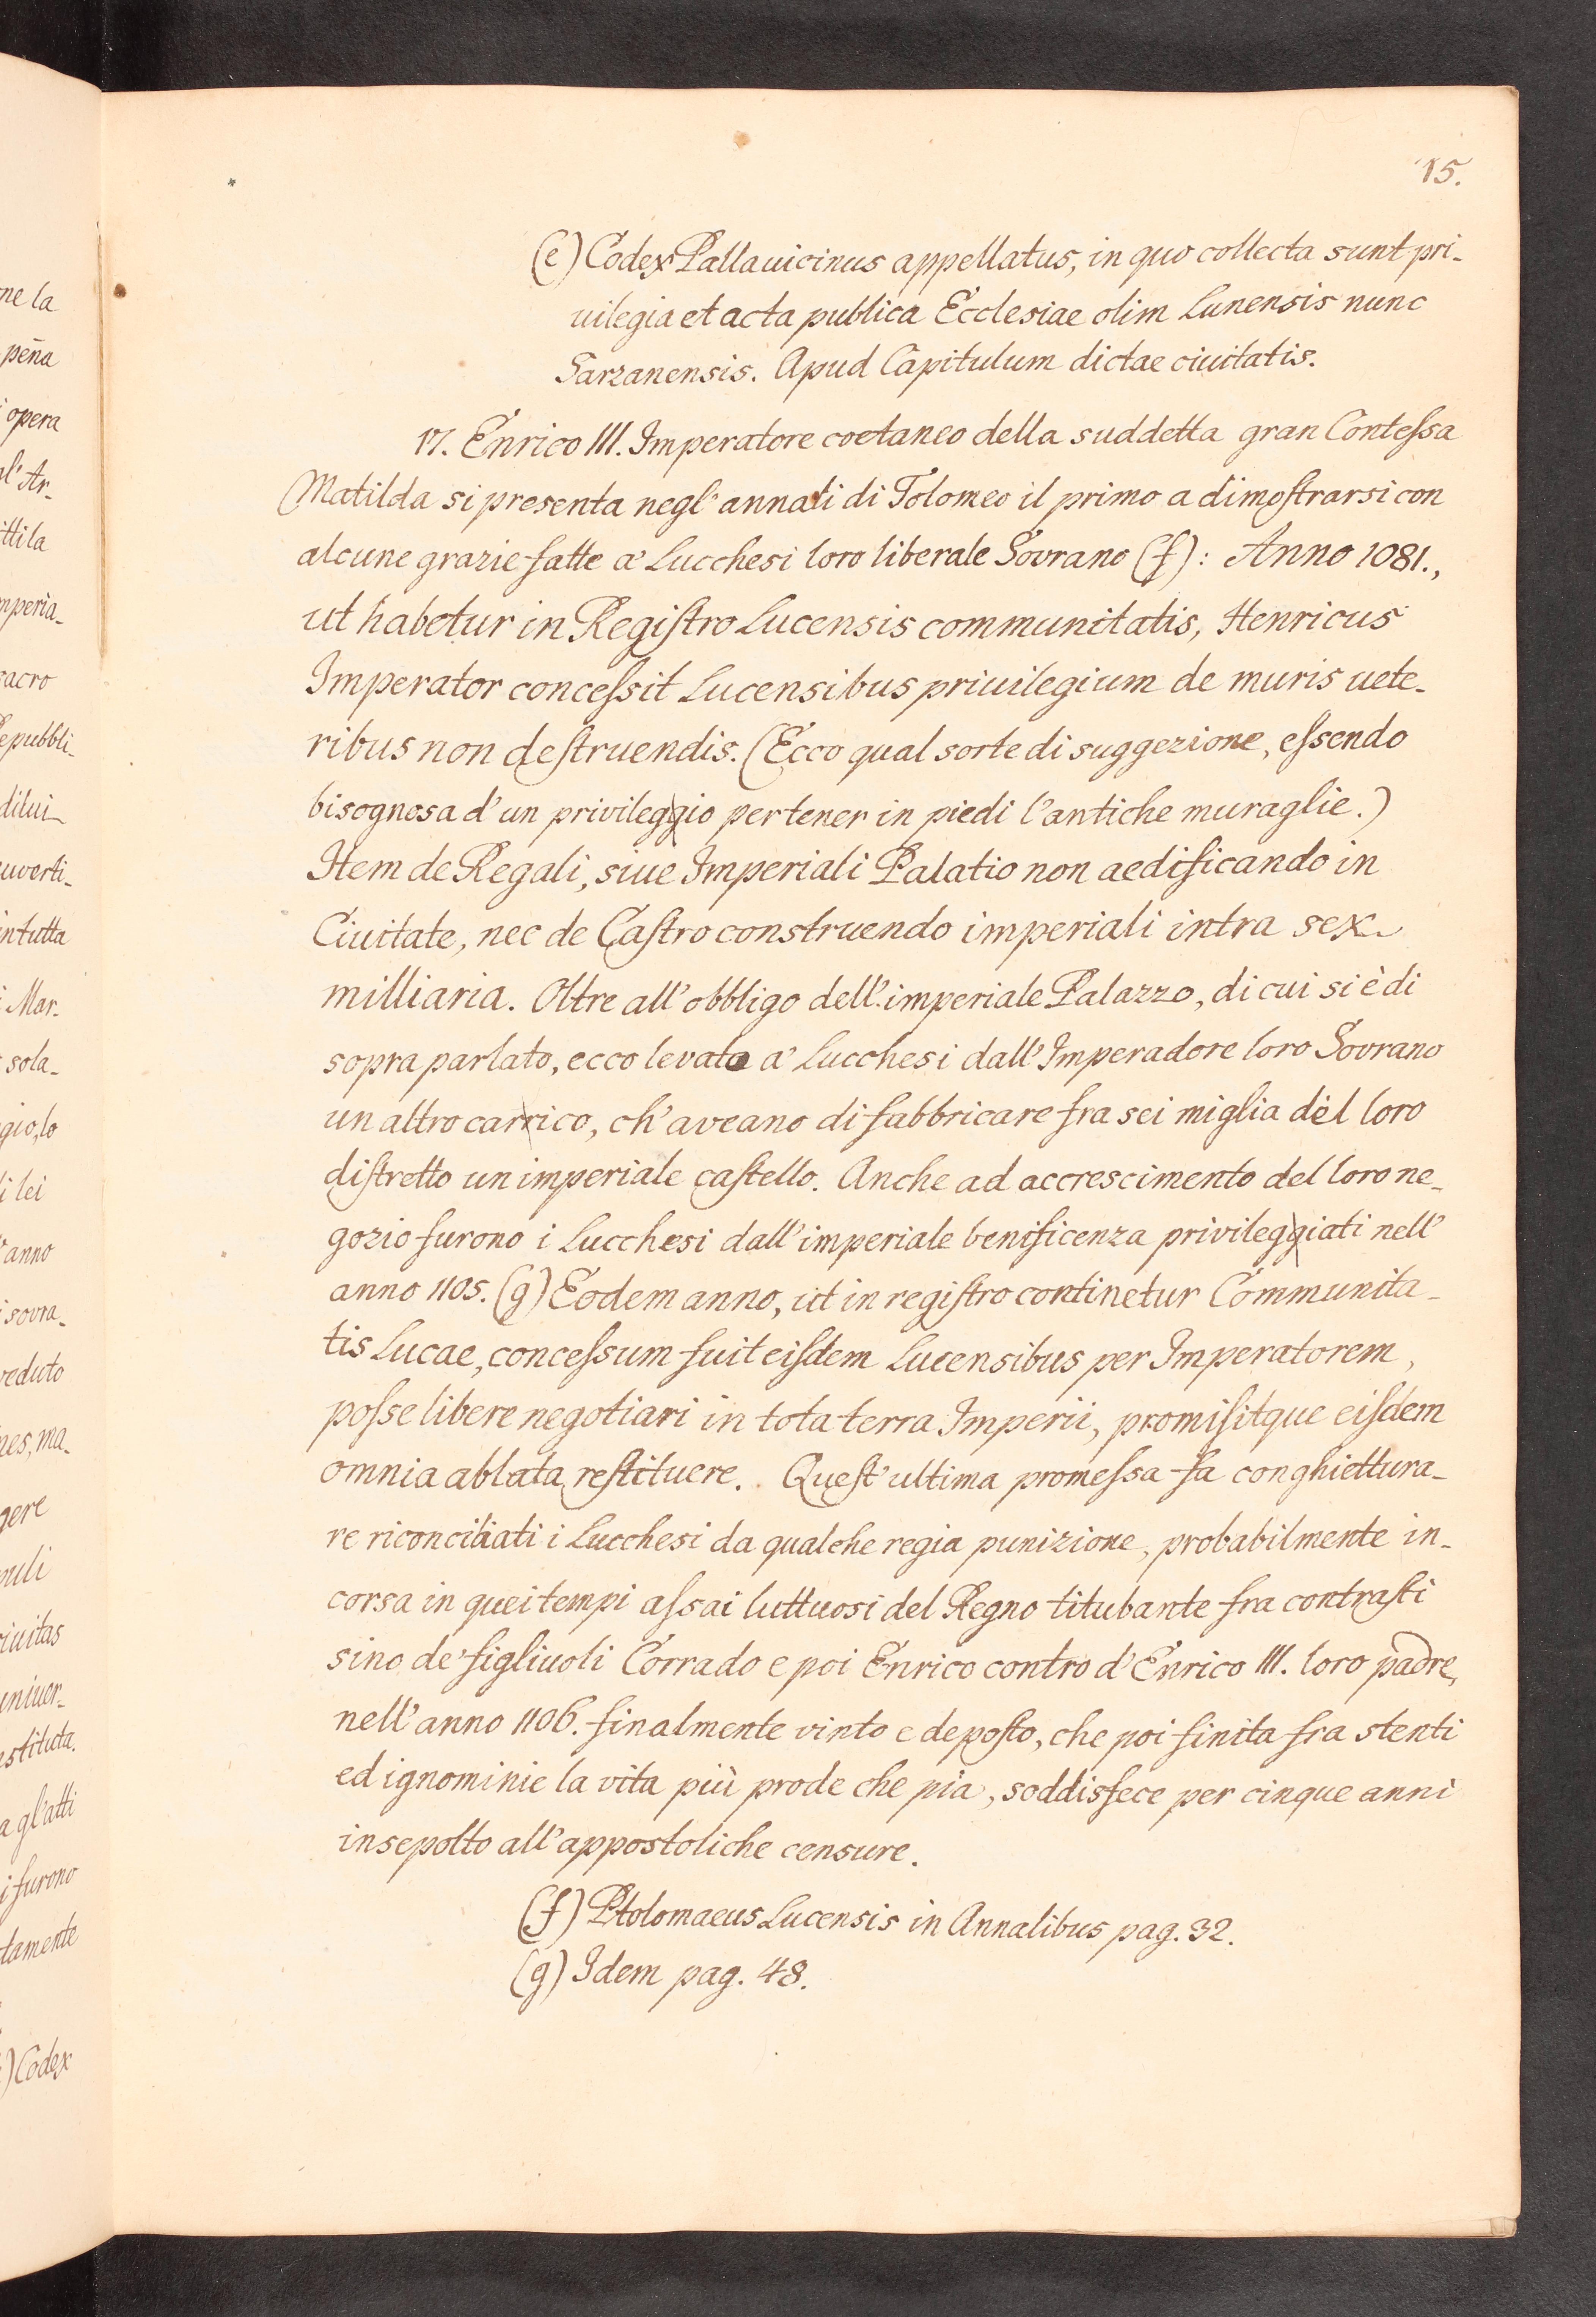 15.
(e) Codex Pallauicinus appellatus, in quo collecta sunt pri-
uilegia et acta publica Ecclesiae olim Lunensis nunc
Sarzanensis. Apud Capitulum dictae ciuitatis.
17. Enrico III. Imperatore coetaneo della suddetta gran Contessa
Matilda si presenta negl' annali di Tolomeo il primo a dimostrarsi con
alcune grazie fatte a' Lucchesi loro liberale Sovrano (f): Anno 1081.,
ut habetur in Registro Lucensis communitatis, Henricus
Imperator concessit Lucensibus priuilegium de muris uete-
ribus non destruendis. (Ecco qual sorte di suggezione, essendo
bisognosa d'un privileggio per tener in piedi l'antiche muraglie.)
Item de Regali, siue Imperiali Palatio non aedificando in
Ciuitate, nec de Castro construendo imperiali intra sex
milliaria. Oltre all' obbligo dell' imperiale Palazzo, di cui si è di
sopra parlato, ecco levato a' Lucchesi dall' Imperadore loro Sovrano
un altro carrico, ch' aveano di fabbricare fra sei miglia del loro
distretto un imperiale castello. Anche ad accrescimento del loro ne-
gozio furono i Lucchesi dall' imperiale benificenza privileggiati nell'
anno 1105. (g) Eodem anno, ut in registro continetur Communita-
tis Lucae, concessum fuit eisdem Lucensibus per Imperatorem,
posse libere negotiari in tota terra Imperii, promisitque eisdem
omnia ablata restituere. Quest' ultima promessa fa conghiettura-
re riconciliati i Lucchesi da qualche regia punizione, probabilmente in-
corsa in quei tempi assai luttuosi del Regno titubante fra contrasti
sino de' figliuoli Corrado e poi Enrico contro d' Enrico III. loro padre,
nell' anno 1106. finalmente vinto e deposto, che poi finita fra stenti
ed ignominie la vita più prode che pia, soddisfece per cinque anni
insepolto all' appostoliche censure.
(f) Ptolomaeus Lucensis in Annalibus pag. 32.
(g) Idem pag. 48.